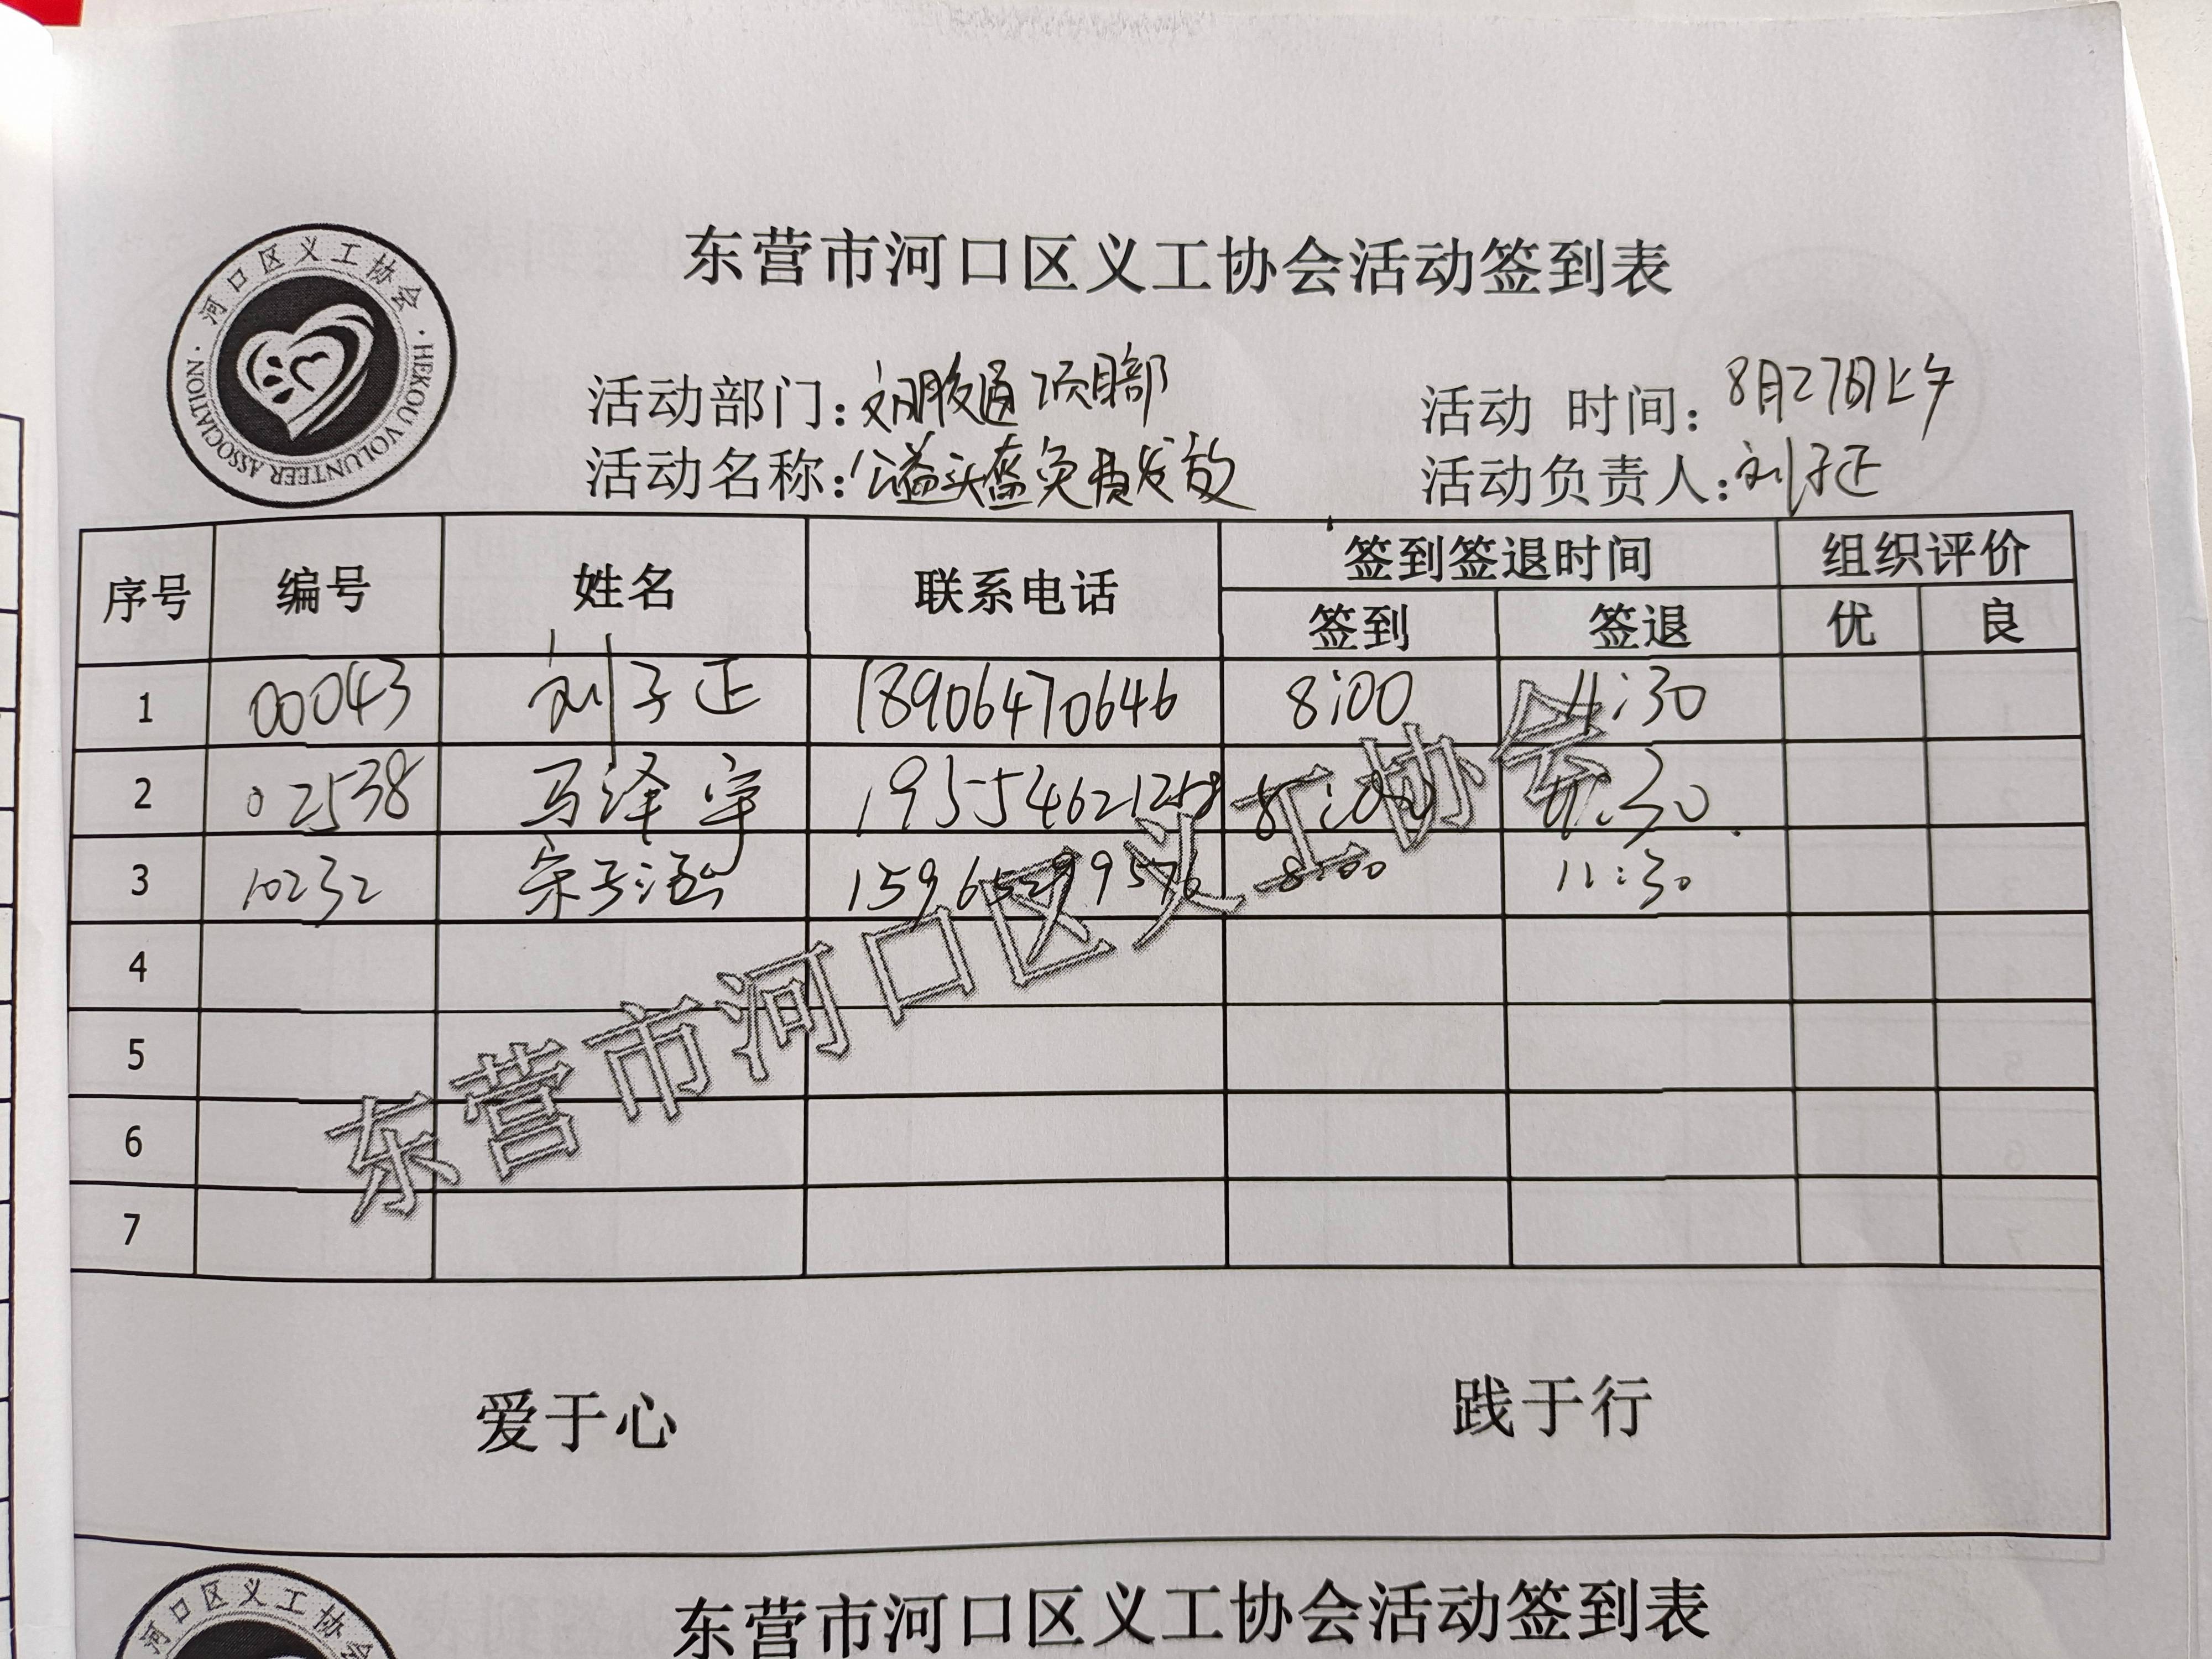 东营市河口区义工协会活动签到表
河口区义工协会
HEKOU VOLUNTEER ASSOCIATION
活动部门：交通项目部
活动 时间：8月27日上午
活动名称：公益头盔免费发放
活动负责人：刘子正
序号 编号 姓名 联系电话 签到签退时间 组织评价
签到 签退 优 良
1 00043 刘子正 18906470646 8:00 11:30
2 02538 马泽宇 8:00 11:30
3 10232 宋子涵 8:00 11:30
4
5
6
7
东营市河口区义工协会
爱于心 践于行
东营市河口区义工协会活动签到表
河口区义工协会